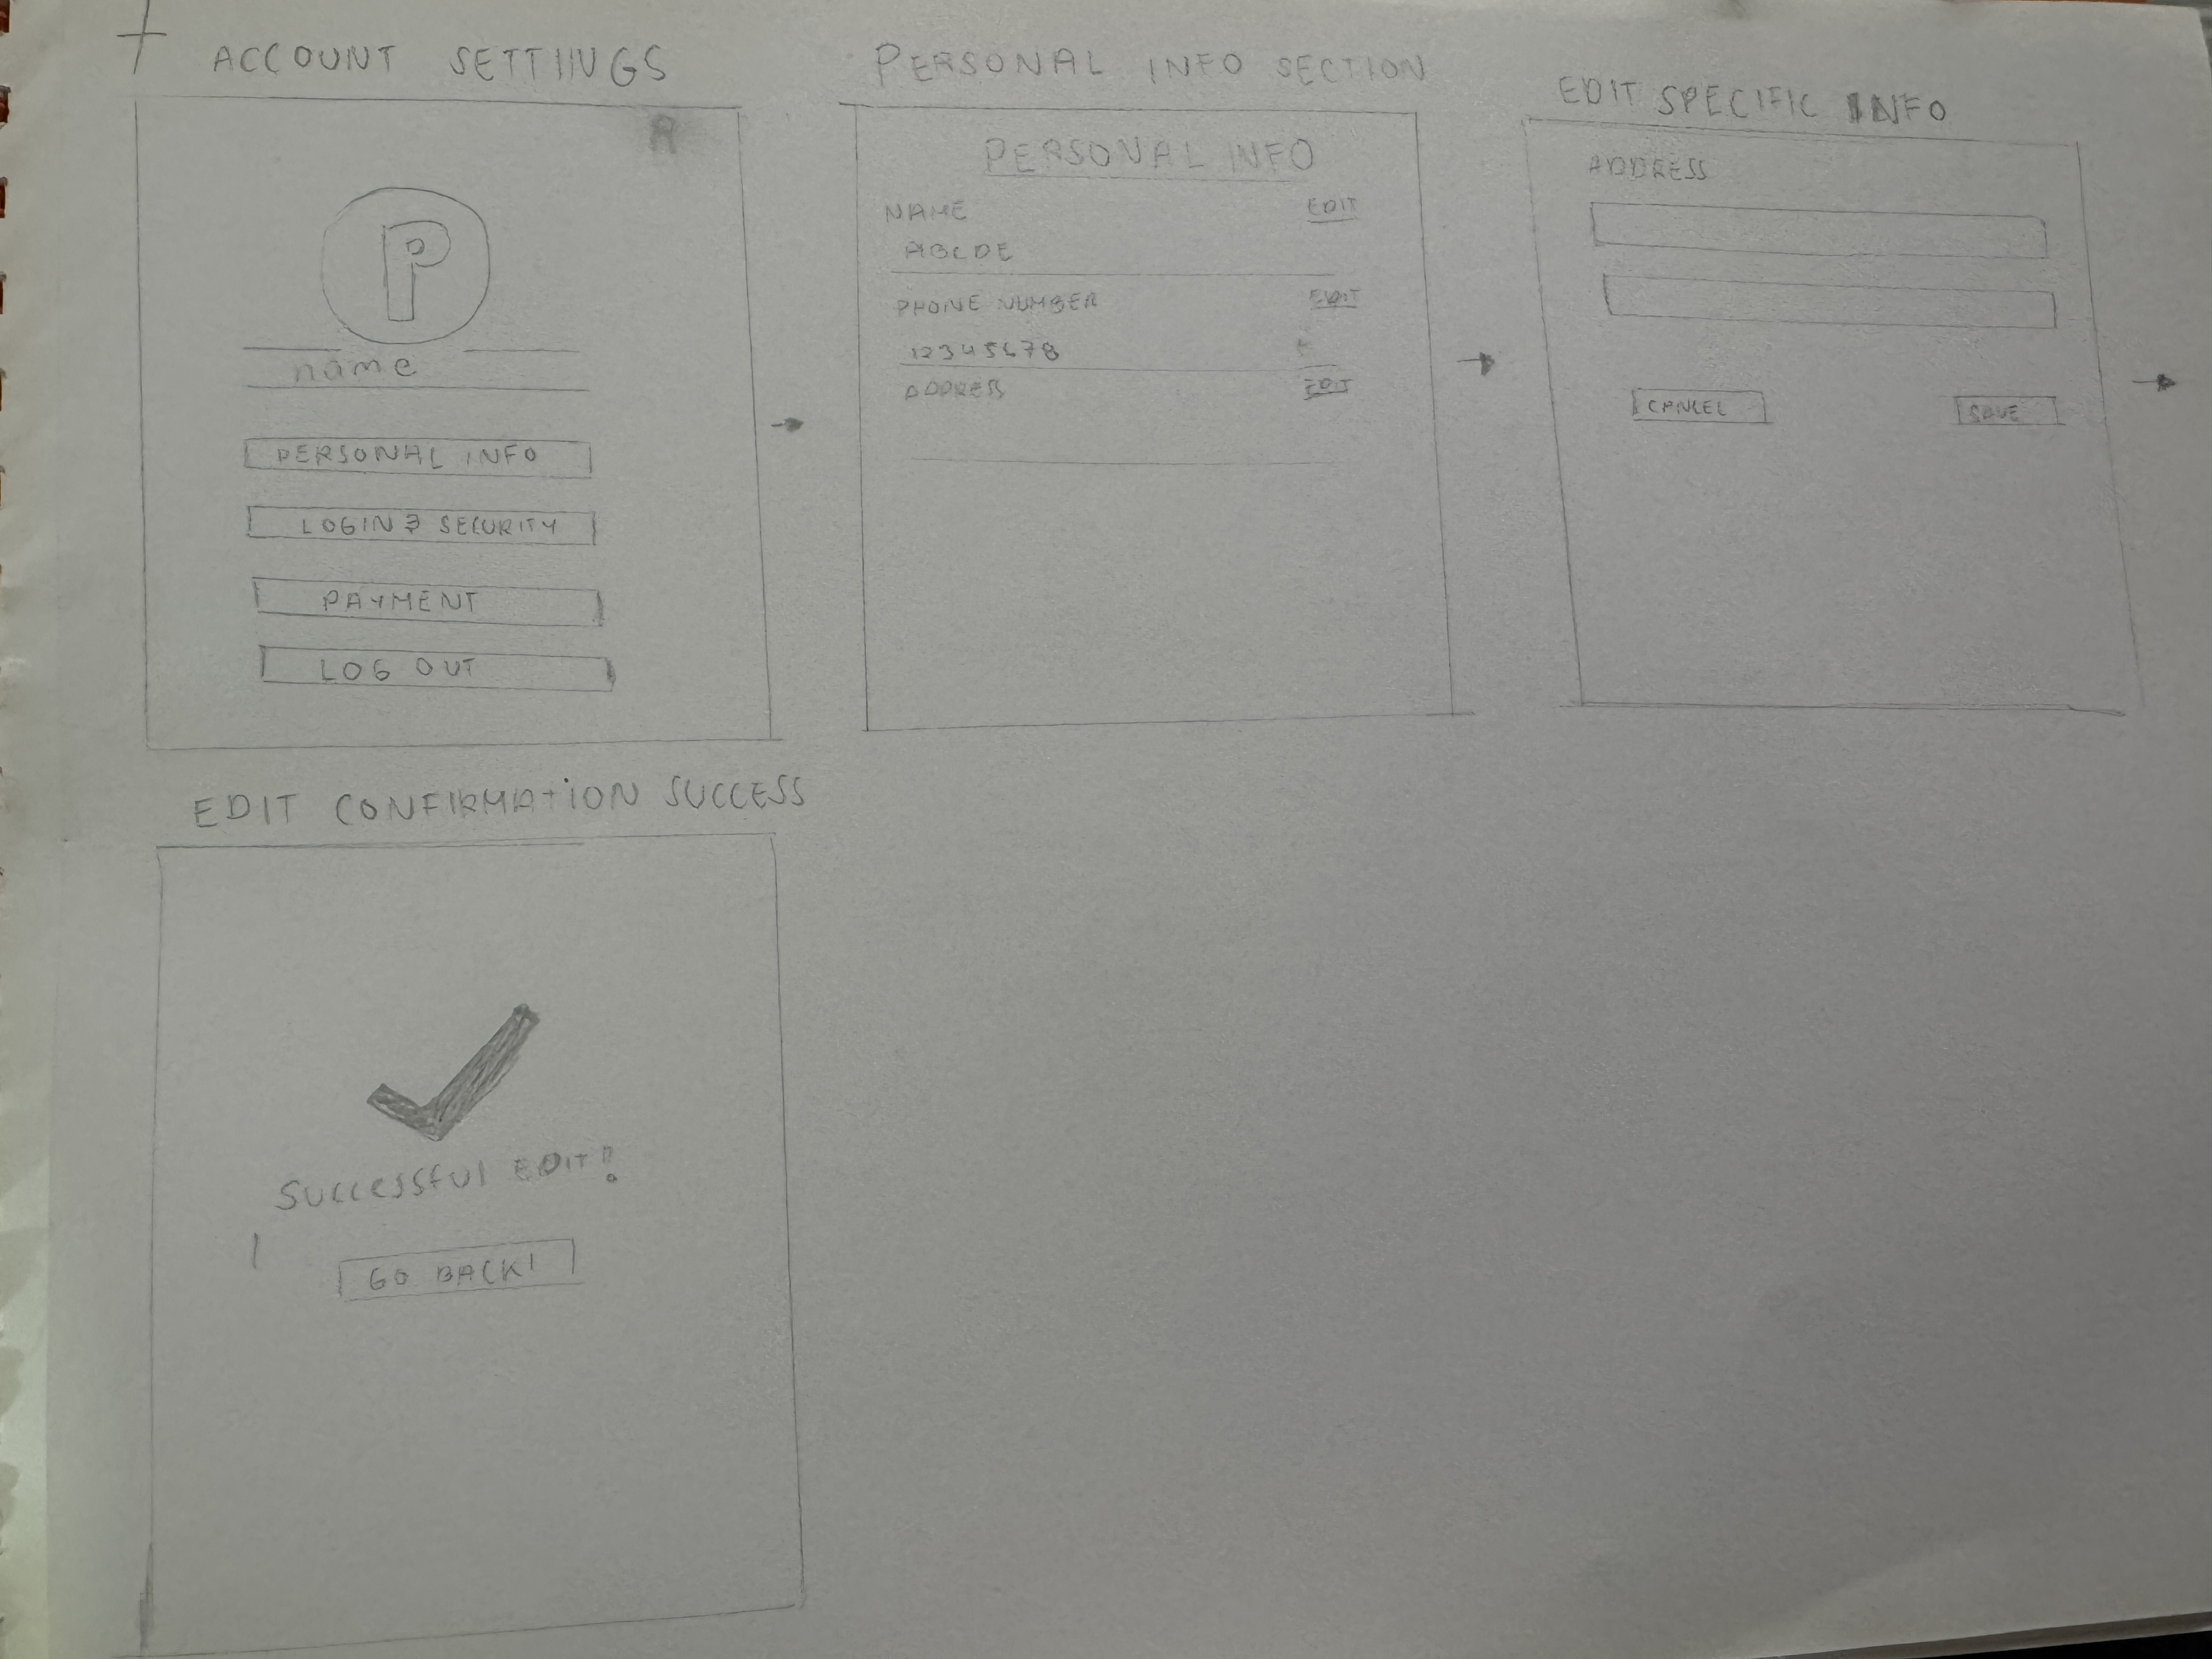 ACCOUNT SETTINGS
P
name
PERSONAL INFO
LOGIN & SECURITY
PAYMENT
LOG OUT
PERSONAL INFO SECTION
PERSONAL INFO
NAME EDIT
ABCDE
PHONE NUMBER EDIT
12345678
ADDRESS EDIT
EDIT SPECIFIC INFO
ADDRESS
CANCEL SAVE
EDIT CONFIRMATION SUCCESS
SUCCESSFUL EDIT!
GO BACK!